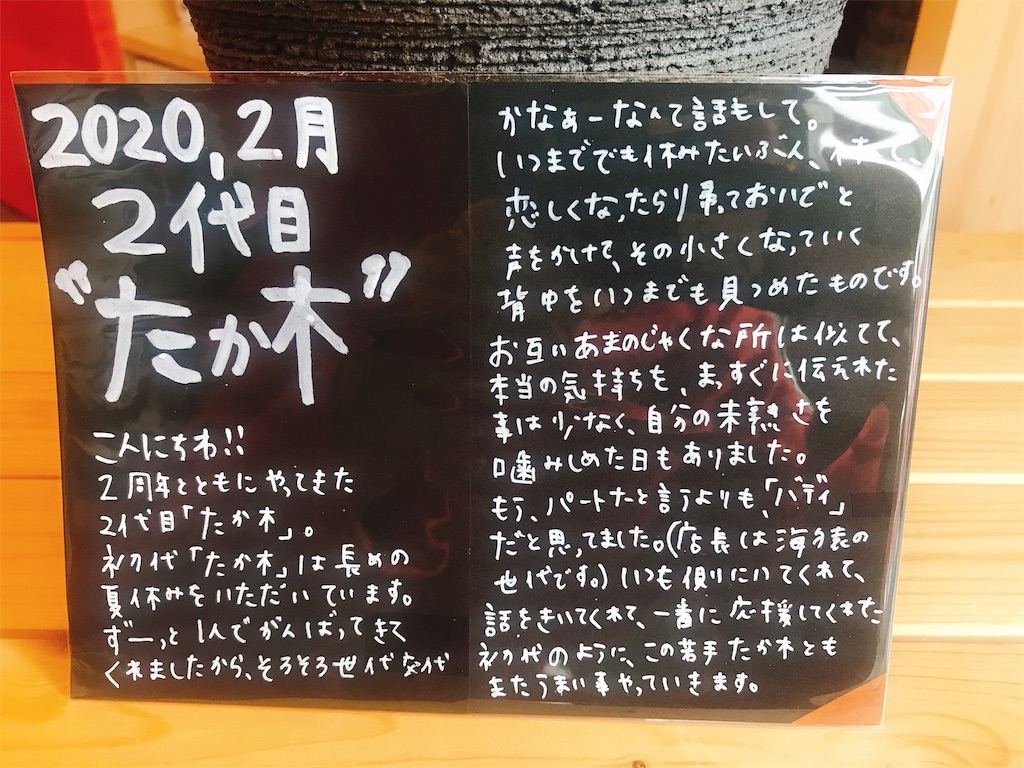 2020,2月
2代目
"たか木"
こんにちわ!!
2周年とともにやってきた
2代目「たか木」。
初代「たか木」は長めの
夏休みをいただいています。
ずーっと1人でがんばってきて
くれましたから、そろそろ世代交代
かなぁーなんて話もして。
いつまででも休みたいぶん、休んで、
恋しくなったらり帰っておいでと
声をかけて、その小さくなっていく
背中をいつまでも見つめたものです。
お互いあまのじゃくな所は似てて、
本当の気持ちを、まっすぐに伝えれた
事は少なく、自分の未熟さを
噛みしめた日もありました。
もう、パートナだと言うよりも、「バディ」
だと思ってました。(店長は海猿の
世代です。)いつも側にいてくれて、
話をきいてくれて、一番に応援してくれた
初代のように、この若手たか木とも
またうまい事やっていきます。